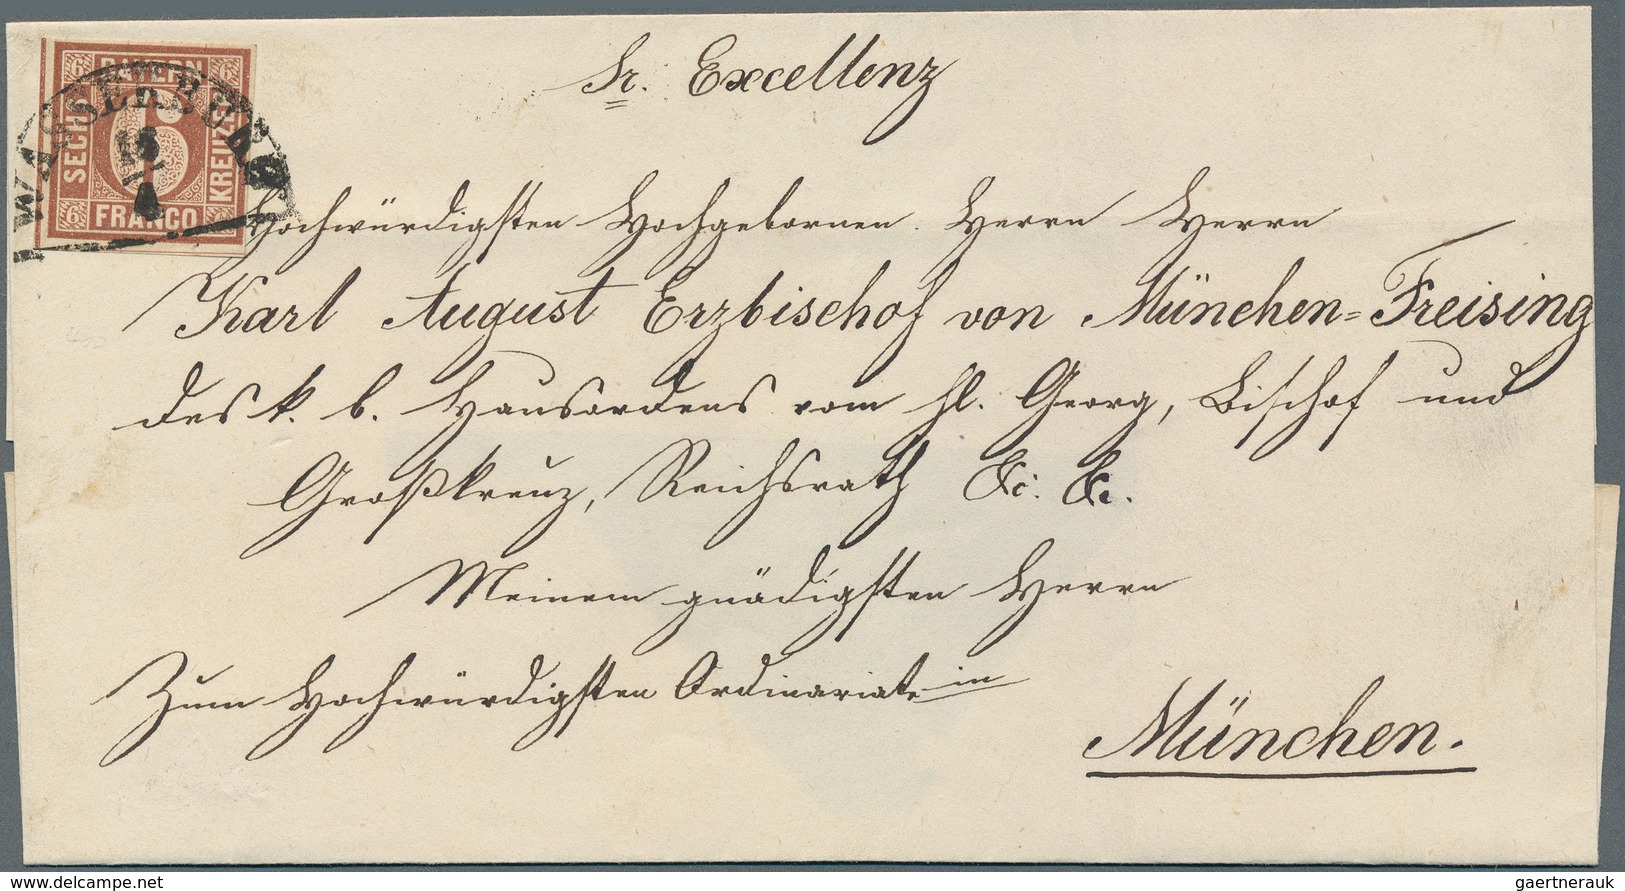 BAYERN
SECHS
KREUZER
FRANCO
6
6
6
6
6
WASSERBURG
16
4
Sr. Excellenz
Hochwürdigsten Hochgebornen Herrn Herrn
Karl August Erzbischof von München=Freising
des k. b. Hausordens vom hl. Georg, Bischof und
Großkreuz, Reichsrath &c. &c.
Meinem gnädigsten Herrn
Zum Hochwürdigsten Ordinariate in
München.
www.delcampe.net
gaertnerauk